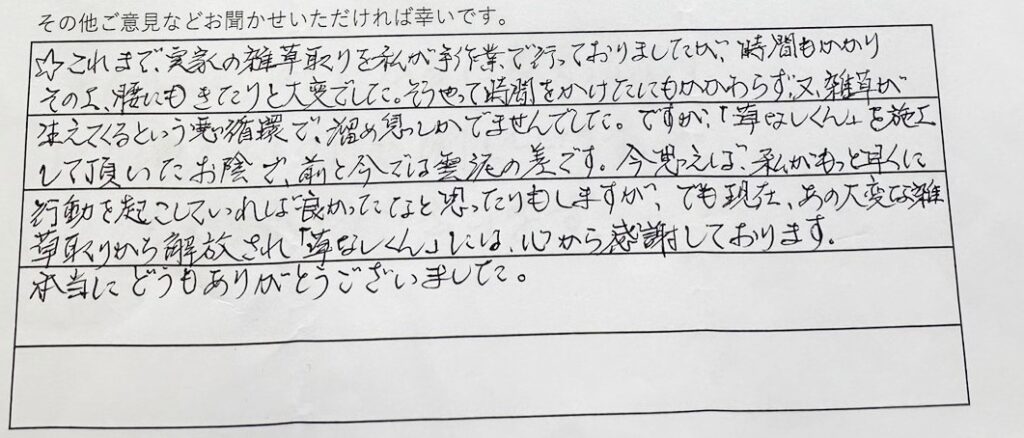 その他ご意見などお聞かせいただければ幸いです。
☆これまで、実家の雑草取りを私が手作業で行っておりましたが、時間もかかり
その上、腰にもきたりと大変でした。そうやって時間をかけたにもかかわらず、又、雑草が
生えてくるという悪循環で、溜め息しかでませんでした。ですが、「草なしくん」を施工
して頂いたお陰で、前と今では雲泥の差です。今思えば、私がもっと早くに
行動を起こしていれば良かったなと思ったりもしますが、でも現在、あの大変な雑
草取りから解放され「草なしくん」には、心から感謝しております。
本当にどうもありがとうございました。